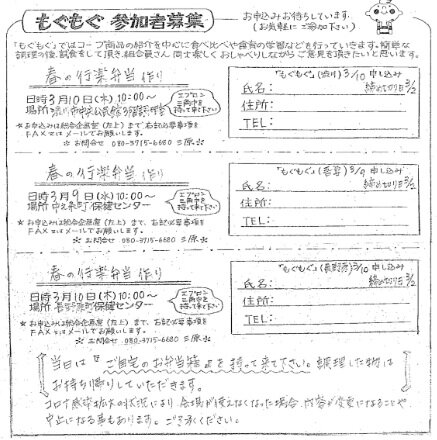 もぐもぐ 参加者募集
お申込みお待ちしています.
(お気軽に ご参加下さい)
「もぐもぐ」ではコープ商品の紹介を中心に食べ比べや食育の学習などを行っていきます。簡単な
調理の後、試食をして頂き、組合員さん同士楽しくおしゃべりしながらご意見を頂きたいと思います。
春の行楽弁当 作り
日時 3月10日(木) 10:00〜
場所
エプロン
三角巾を
持って来て下さい
＊お申込みは総合企画室(左上)まで、右記必要事項を
FAXまたはメールでお願いします。
＊お問合せ 080-3715-6680 三原＊
「もぐもぐ」(渋川) 3/10 申し込み
締め切り日 3/2
氏名:
住所:
TEL:
春の行楽弁当 作り
日時 3月9日(水) 10:00〜
場所 中之条町保健センター
エプロン
三角巾を
持って来て下さい
＊お申込みは総合企画室(左上)まで、右記必要事項を
FAXまたはメールでお願いします。
＊お問合せ 080-3715-6680 三原＊
「もぐもぐ」(吾妻) 3/9 申し込み
締め切り日 3/2
氏名:
住所:
TEL:
春の行楽弁当 作り
日時 3月10日(木) 10:00〜
場所 長野原町保健センター
エプロン
三角巾を
持って来て下さい
＊お申込みは総合企画室(左上)まで、右記必要事項を
FAXまたはメールでお願いします。
＊お問合せ 080-3715-6680 三原＊
「もぐもぐ」(長野原) 3/10 申し込み
締め切り日 3/2
氏名:
住所:
TEL:
当日は『ご自宅のお弁当箱』を持って来て下さい。調理した物は
お持ち帰りしていただきます。
コロナ感染拡大の状況により、会場が使えなくなった場合、内容が変更になることや
中止になる事もあります。ご了承ください。